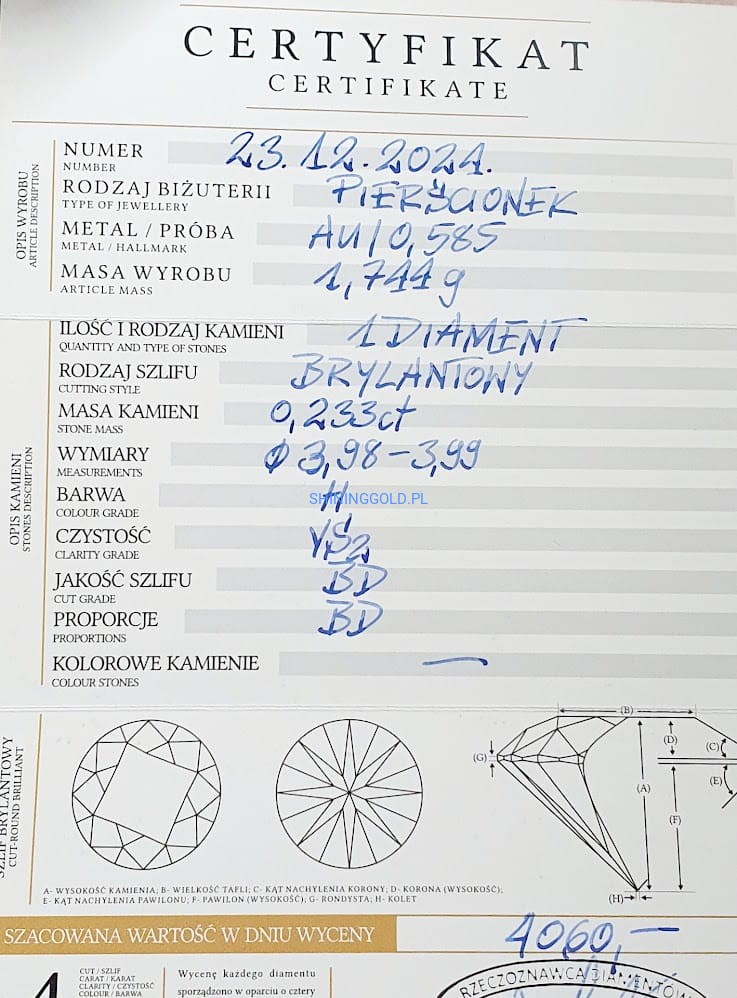 CERTYFIKAT
CERTIFIKATE
OPIS WYROBU
ARTICLE DESCRIPTION
NUMER 23.12.2024.
NUMBER
RODZAJ BIŻUTERII PIERŚCIONEK
TYPE OF JEWELLERY
METAL / PRÓBA AU/0,585
METAL / HALLMARK
MASA WYROBU 1,744 g
ARTICLE MASS
OPIS KAMIENI
STONES DESCRIPTION
ILOŚĆ I RODZAJ KAMIENI 1 DIAMENT
QUANTITY AND TYPE OF STONES
RODZAJ SZLIFU BRYLANTOWY
CUTTING STYLE
MASA KAMIENI 0,233ct
STONE MASS
WYMIARY Ø 3,98-3,99
MEASUREMENTS
BARWA H
COLOUR GRADE
SHININGGOLD.PL
CZYSTOŚĆ VS2
CLARITY GRADE
JAKOŚĆ SZLIFU BD
CUT GRADE
PROPORCJE BD
PROPORTIONS
KOLOROWE KAMIENIE —
COLOUR STONES
SZLIF BRYLANTOWY
CUT-ROUND BRILLIANT
(B)
(D)
(C)
(G)
(E)
(A)
(F)
(H)
A- WYSOKOŚĆ KAMIENIA; B- WIELKOŚĆ TAFLI; C- KĄT NACHYLENIA KORONY; D- KORONA (WYSOKOŚĆ);
E- KĄT NACHYLENIA PAWILONU; F- PAWILON (WYSOKOŚĆ); G- RONDYSTA; H- KOLET
SZACOWANA WARTOŚĆ W DNIU WYCENY 4060,—
4
CUT / SZLIF
CARAT / KARAT
CLARITY / CZYSTOŚĆ
COLOUR / BARWA
Wycenę każdego diamentu
sporządzono w oparciu o cztery
RZECZOZNAWCA DIAMENTÓW